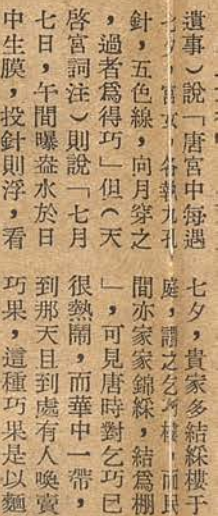 遺事)說「唐宮中每遇
七夕,宮女,各執九孔
針,五色線,向月穿之
,過者爲得巧」但(天
啓宮詞注)則說「七月
七日,午間曝盎水於日
中生膜,投針則浮,看
七夕,貴家多結綵樓于
庭,謂之乞巧樓,而民
間亦家家錦綵,結爲棚
」,可見唐時對乞巧已
很熱鬧,而華中一帶,
到那天且到處有人喚賣
巧果,這種巧果是以麵